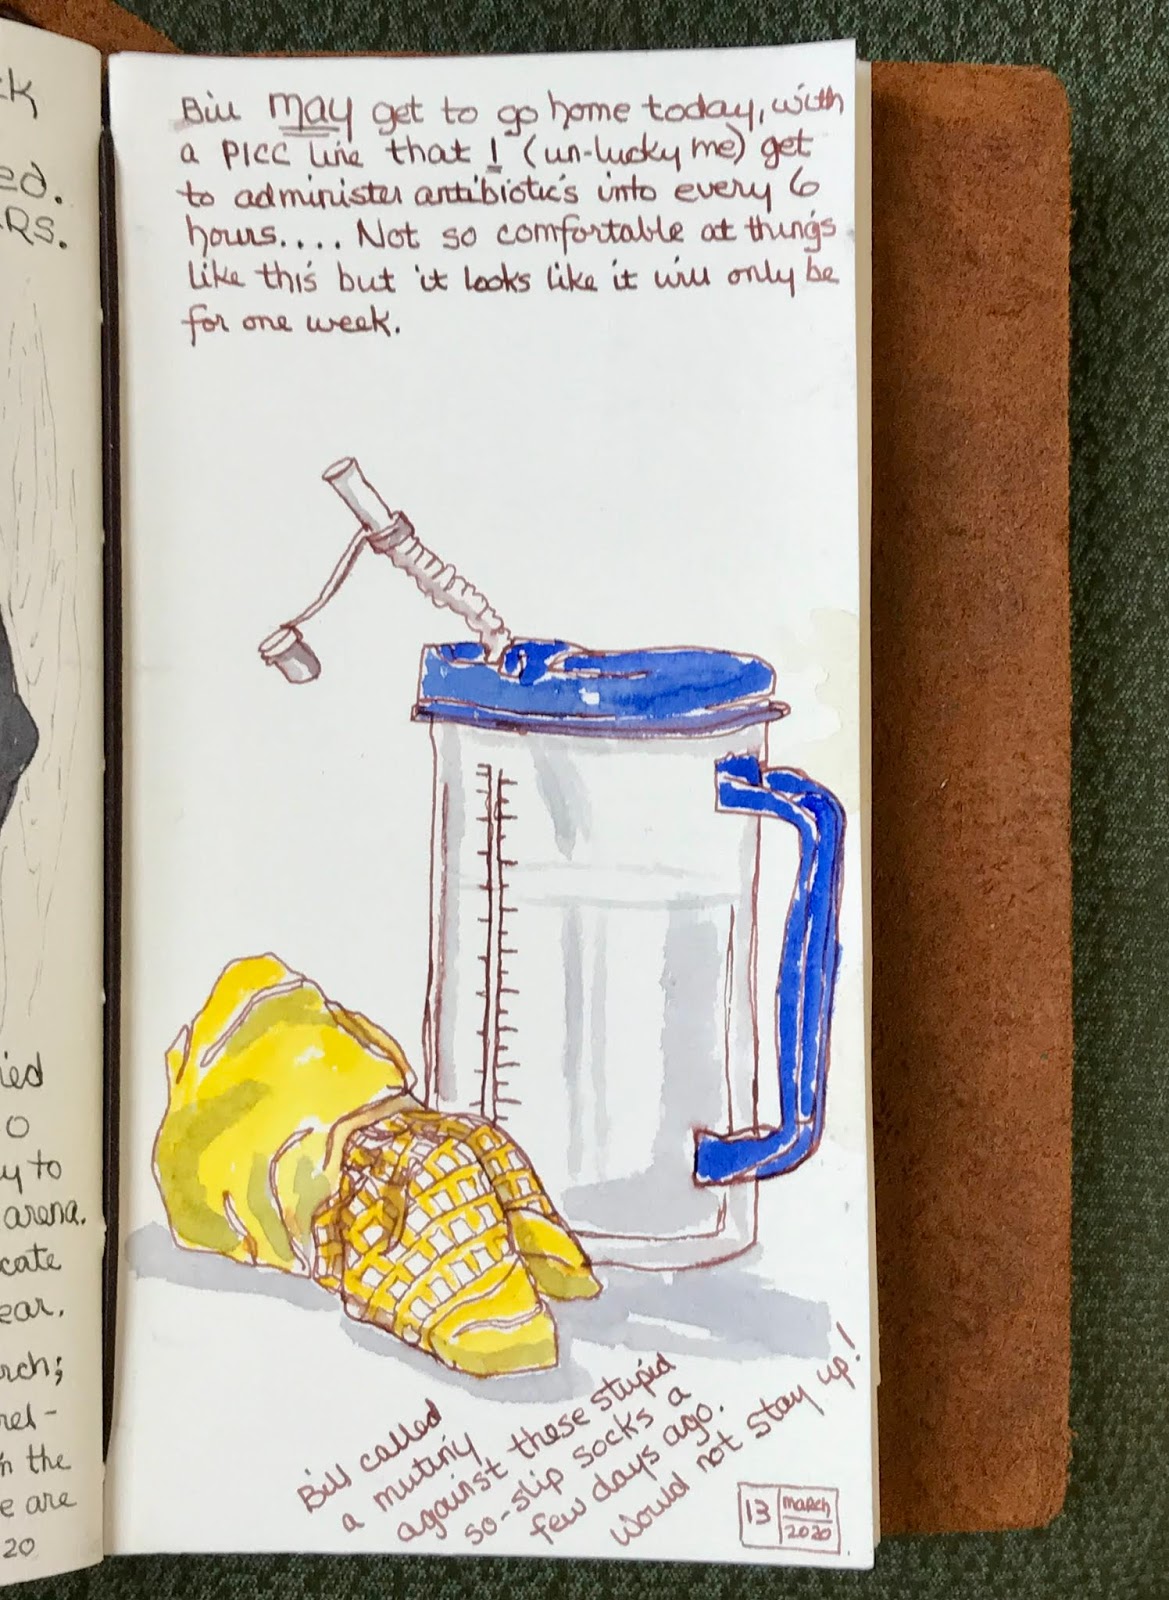 ck
ed.
RS.
ied
o
y to
arena.
cate
ear.
rch;
rel-
n the
e are
20
Bill may get to go home today, with
a PICC line that I (un-lucky me) get
to administer antibiotic's into every 6
hours.... Not so comfortable at things
like this but it looks like it will only be
for one week.
Bill called
a mutiny
against these stupid
so-slip socks a
few days ago.
Would not stay up!
13 march
2020